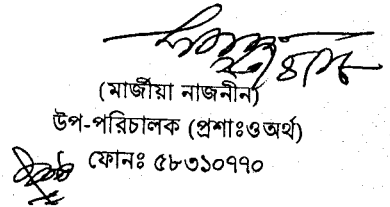 (মার্জীয়া নাজনীন)
উপ-পরিচালক (প্রশাঃওঅর্থ)
ফোনঃ ৫৮৩১০৭৭০